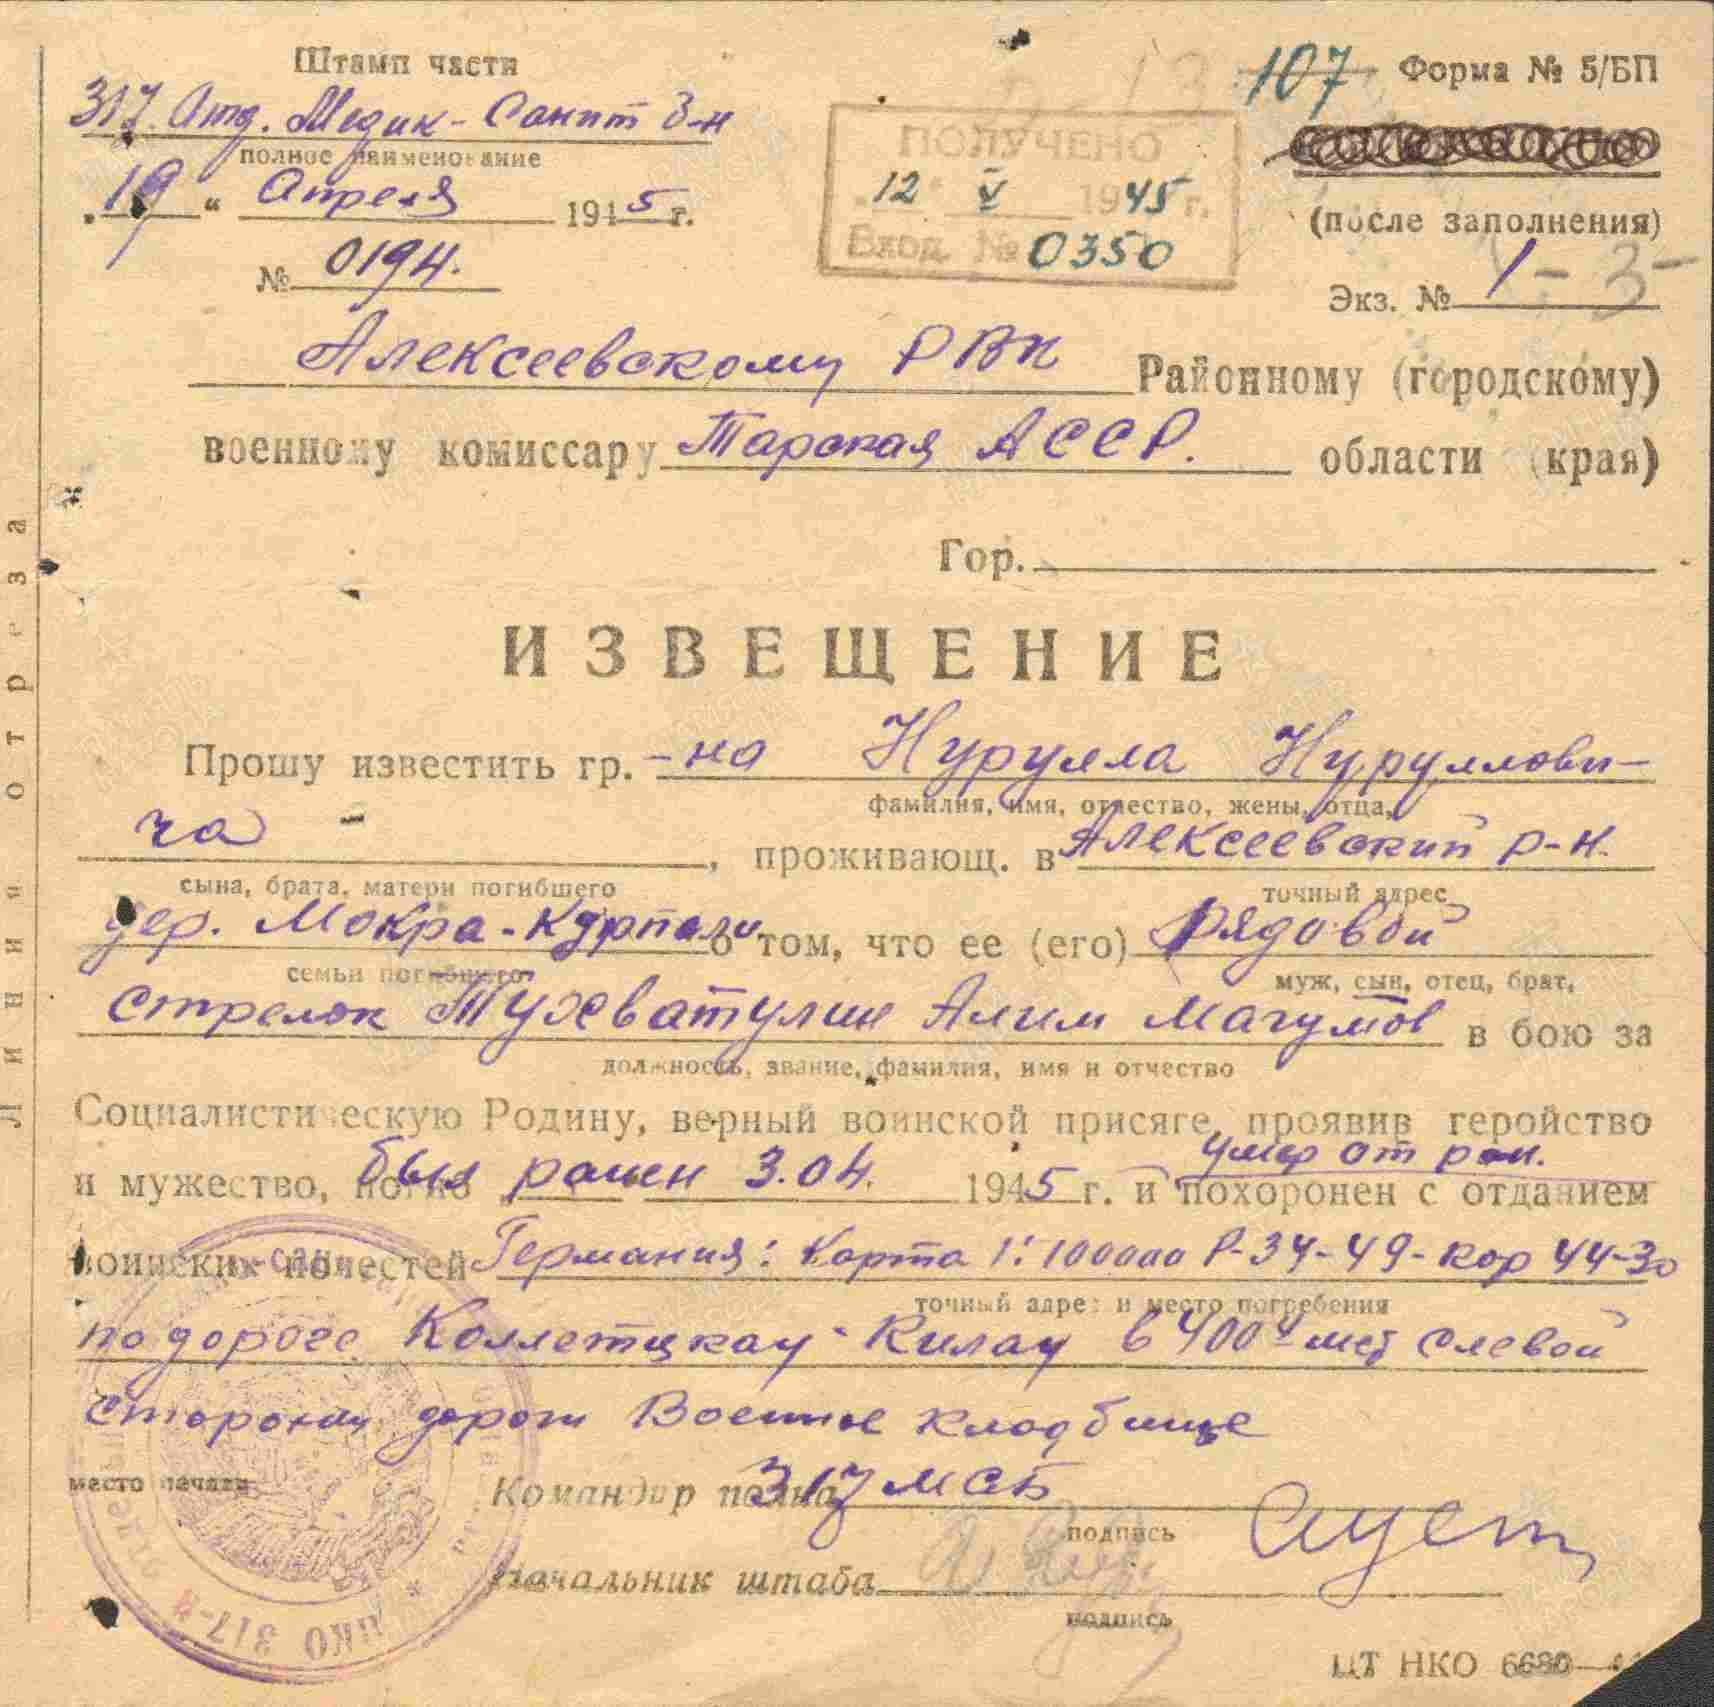 Штамп части
107 Форма № 5/БП
317 Отд. Медик-Санит Б-н
полное наименование
ПОЛУЧЕНО
„19“ Апреля 1945 г.
12 V 1945 г.
(после заполнения)
№ 0194.
Вход. № 0350
Экз. № 1
Алексеевскому РВК Районному (городскому)
военному комиссару Тарская АССР. области (края)
Гор.
ИЗВЕЩЕНИЕ
Прошу известить гр.-на Нурулла Нуруллови-
фамилия, имя, отчество, жены, отца,
ча, проживающ. в Алексеевский р-н.
сына, брата, матери погибшего точный адрес
дер. Мокра-Курнали о том, что ее (его) рядовой
семьи погибшего муж, сын, отец, брат,
стрелок Тухватулин Алим Магумов в бою за
должность, звание, фамилия, имя и отчество
Социалистическую Родину, верный воинской присяге, проявив геройство
умер от ран.
и мужество, был ранен 3.04. 1945 г. и похоронен с отданием
воинских почестей Германия: Карта 1:100000 Р-34-49-кор 44-30
точный адрес и место погребения
по дороге Коллетцкау-Килау в 400 мет с левой
стороны дороги Военное кладбище
место печати
Командир полка 317 МСБ
подпись
Начальник штаба
подпись
НКО 317-й
ЦТ НКО 6680
Линия отреза